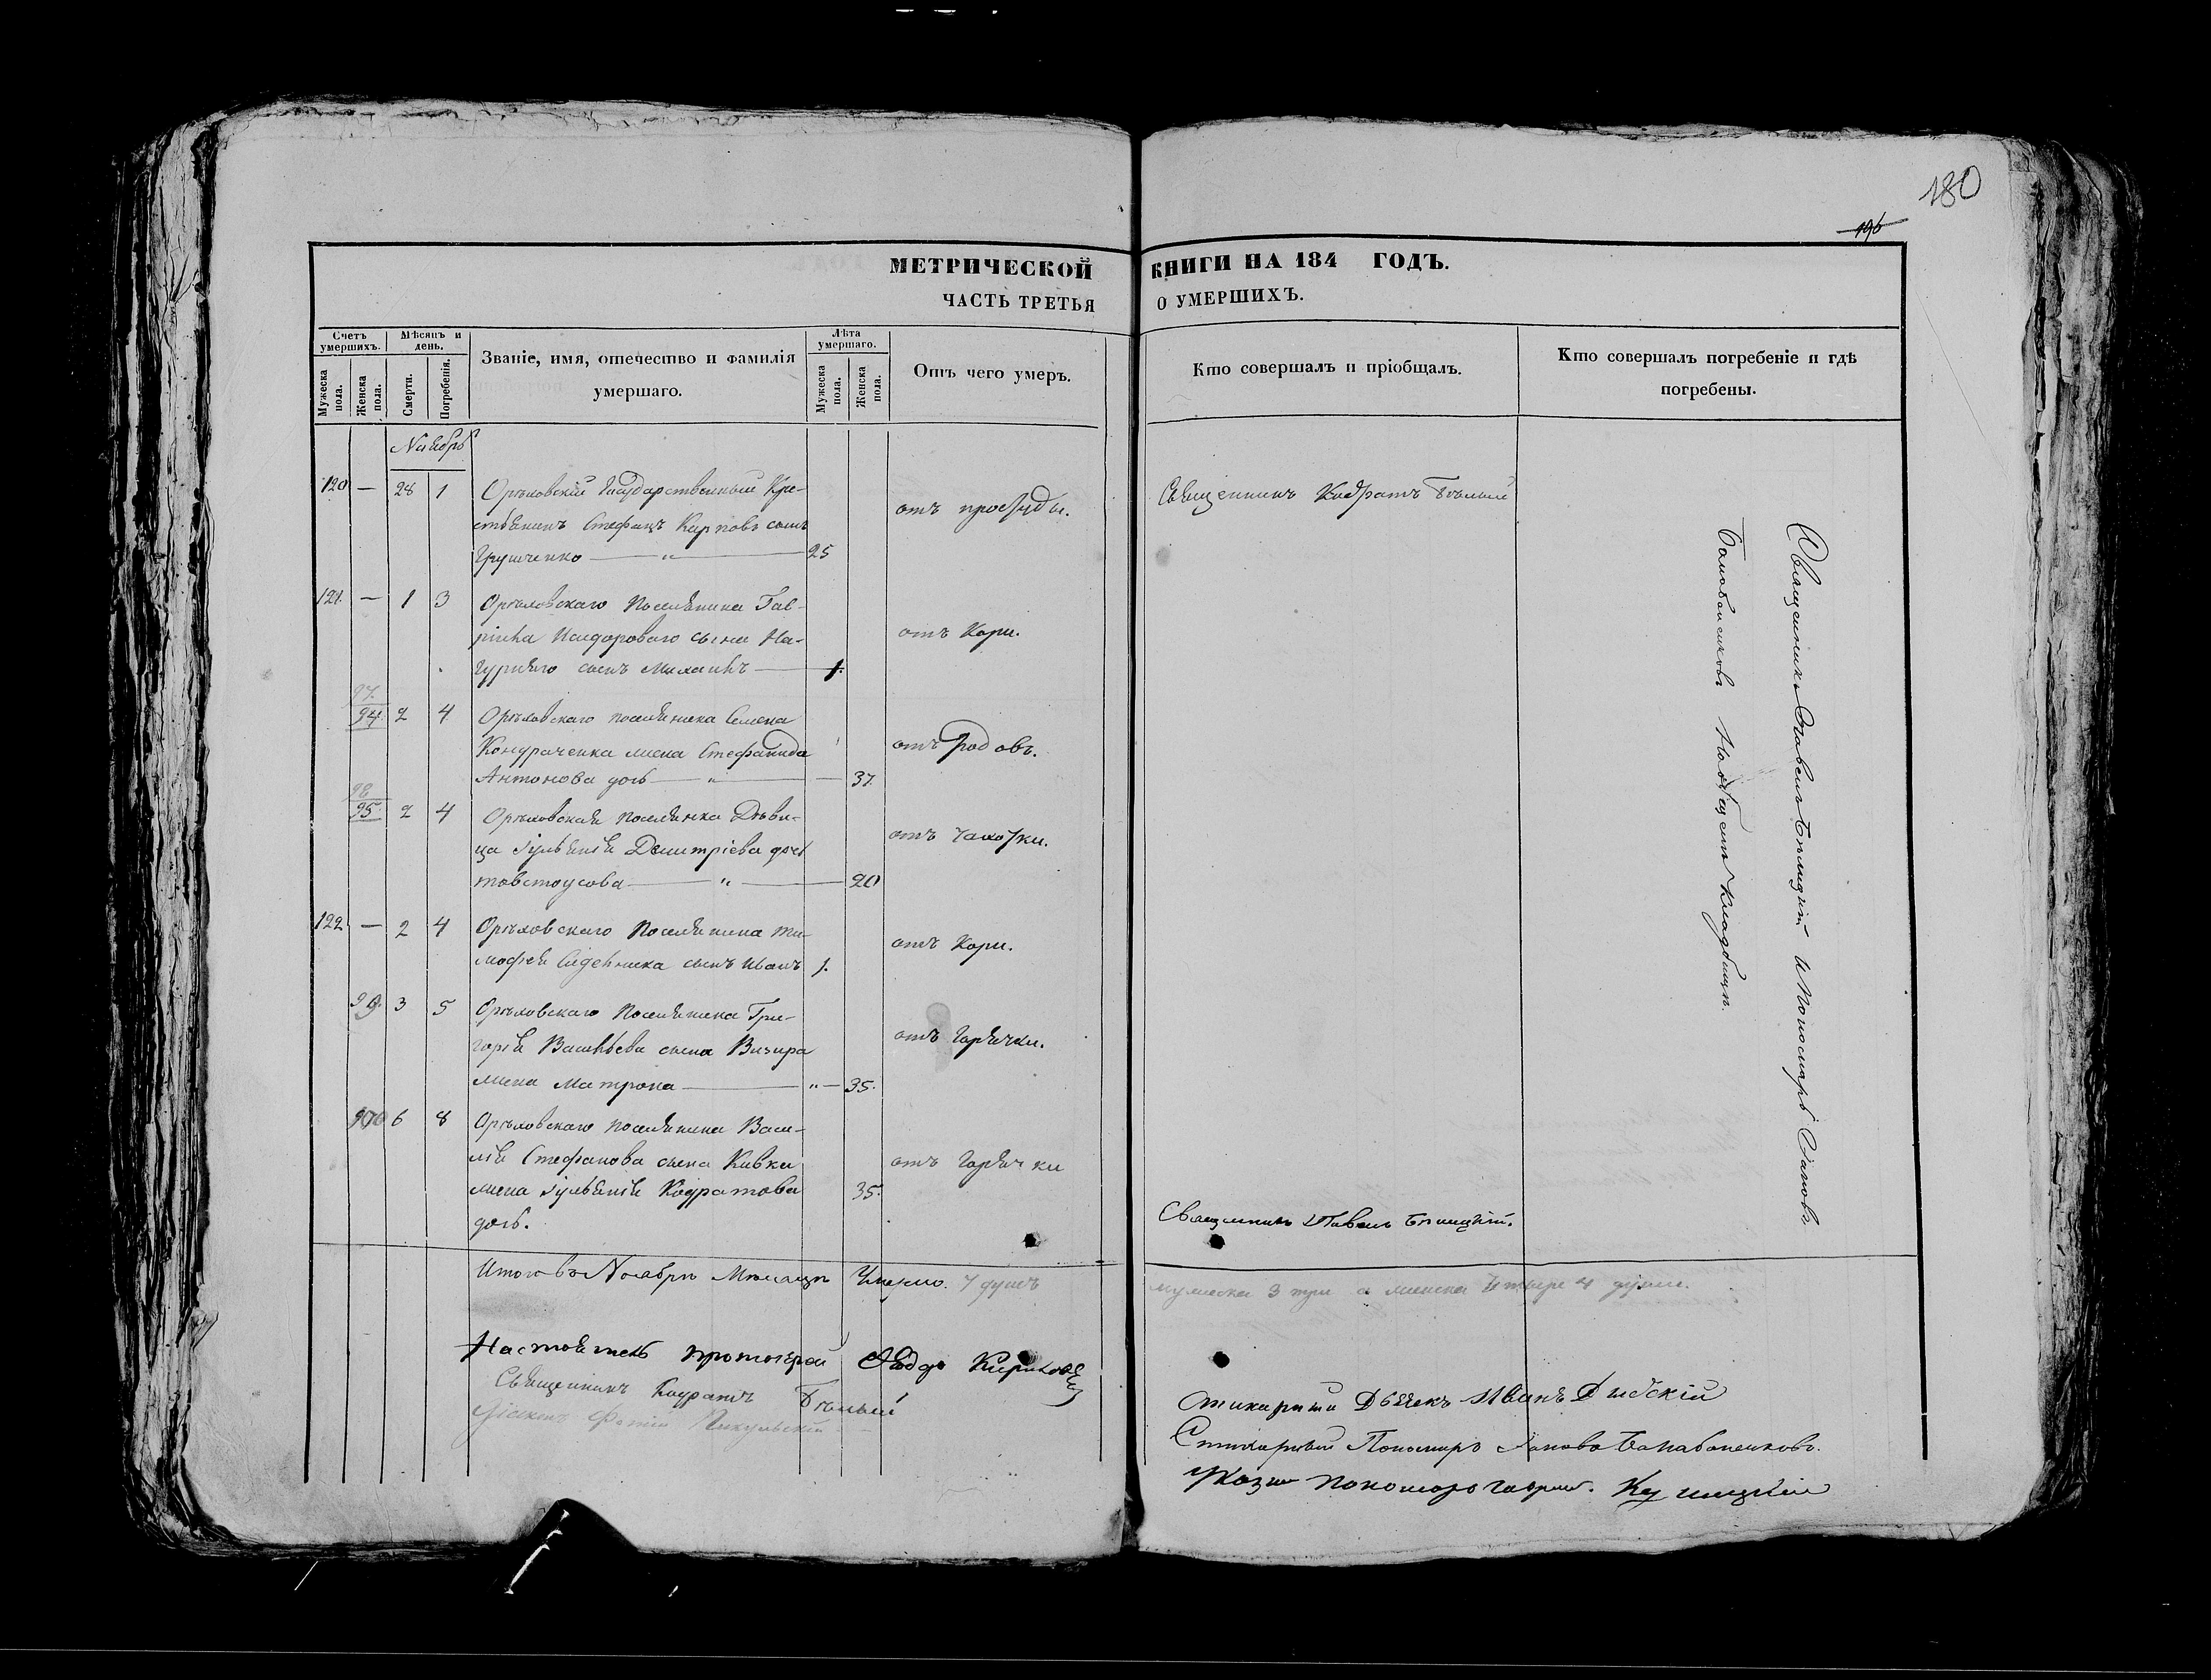 180
196
МЕТРИЧЕСКОЙ КНИГИ НА 184 ГОДЪ.
ЧАСТЬ ТРЕТЬЯ О УМЕРШИХЪ.
Счетъ умершихъ.
Мѣсяцъ и день.
Званіе, имя, отечество и фамилія умершаго.
Лѣта умершаго.
Отъ чего умеръ.
Кто совершалъ и пріобщалъ.
Кто совершалъ погребеніе и гдѣ погребены.
Мужеска пола.
Женска пола.
Смерти.
Погребенія.
Мужеска пола.
Женска пола.
Ноябрь
120 — 28 1 Орѣховскій Государственный Кре-
стьянинъ Стефанъ Карповъ сынъ
Грушченко — „ — 25
отъ простуды.
Священникъ Кодратъ Бѣлый
121. — 1 3 Орѣховскаго Поселянина Гав-
ріила Исидорового сына На-
гурняго сынъ Михаилъ — 1.
отъ Кори.
97.
94. 2 4 Орѣховскаго поселянина Семена
Кондраченка жена Стефанида
Антонова дочь — „ — 37.
отъ родовъ.
98
95. 2 4 Орѣховская поселянка Дѣви-
ца Іульянія Димитріева дочь
товстоусова — „ — 20
отъ чахотки.
122 — 2 4 Орѣховскаго Поселянина Ти-
мофея сынъ Иванъ 1.
отъ Кори.
99. 3 5 Орѣховскаго Поселянина Гри-
горія Васильева сына Визира
жена Матрона — „ — 35.
отъ Горячки.
100 6 8 Орѣховскаго поселянина Васи-
лія Стефанова сына Кивки
жена Іульянія Кодратова
дочь. 35.
отъ Горячки
Священникъ Павелъ Бѣлицкій.
Священникъ Павелъ Бѣлицкій и Пономарь Іаковъ
Балабаненковъ на общемъ кладбищѣ.
Итого въ Ноябрѣ Мѣсяцѣ Умерло. 7 душъ мужеска 3 три а женска 4 души.
Настоятель протоіерей Кириловъ
Священникъ Кодратъ Бѣлый
Діаконъ Фотій
Стихарный Дьячекъ Иванъ
Стихарный Пономарь Іаковъ Балабаненковъ.
пономарь